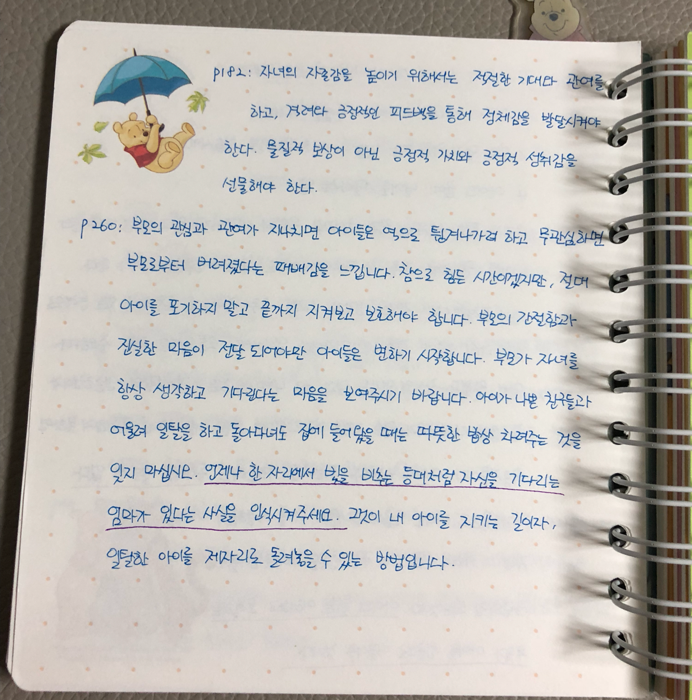 p182: 자녀의 자존감을 높이기 위해서는 적절한 기대와 관여를
하고, 격려와 긍정적인 피드백을 통해 정체감을 발달시켜야
한다. 물질적 보상이 아닌 긍정적 가치와 긍정적 성취감을
선물해야 한다.
p260: 부모의 관심과 관여가 지나치면 아이들은 역으로 튕겨나가려 하고 무관심하면
부모로부터 버려졌다는 패배감을 느낍니다. 참으로 힘든 시간이겠지만, 절대
아이를 포기하지 말고 끝까지 지켜보고 보호해야 합니다. 부모의 간절함과
진실한 마음이 전달 되어야만 아이들은 변하기 시작합니다. 부모가 자녀를
항상 생각하고 기다린다는 마음을 보여주시기 바랍니다. 아이가 나쁜 친구들과
어울려 일탈을 하고 돌아다녀도 집에 들어왔을 때는 따뜻한 밥상 차려주는 것을
잊지 마십시오. 언제나 한 자리에서 빛을 비추는 등대처럼 자신을 기다리는
엄마가 있다는 사실을 인식시켜주세요. 그것이 내 아이를 지키는 길이자,
일탈한 아이를 제자리로 돌려놓을 수 있는 방법입니다.